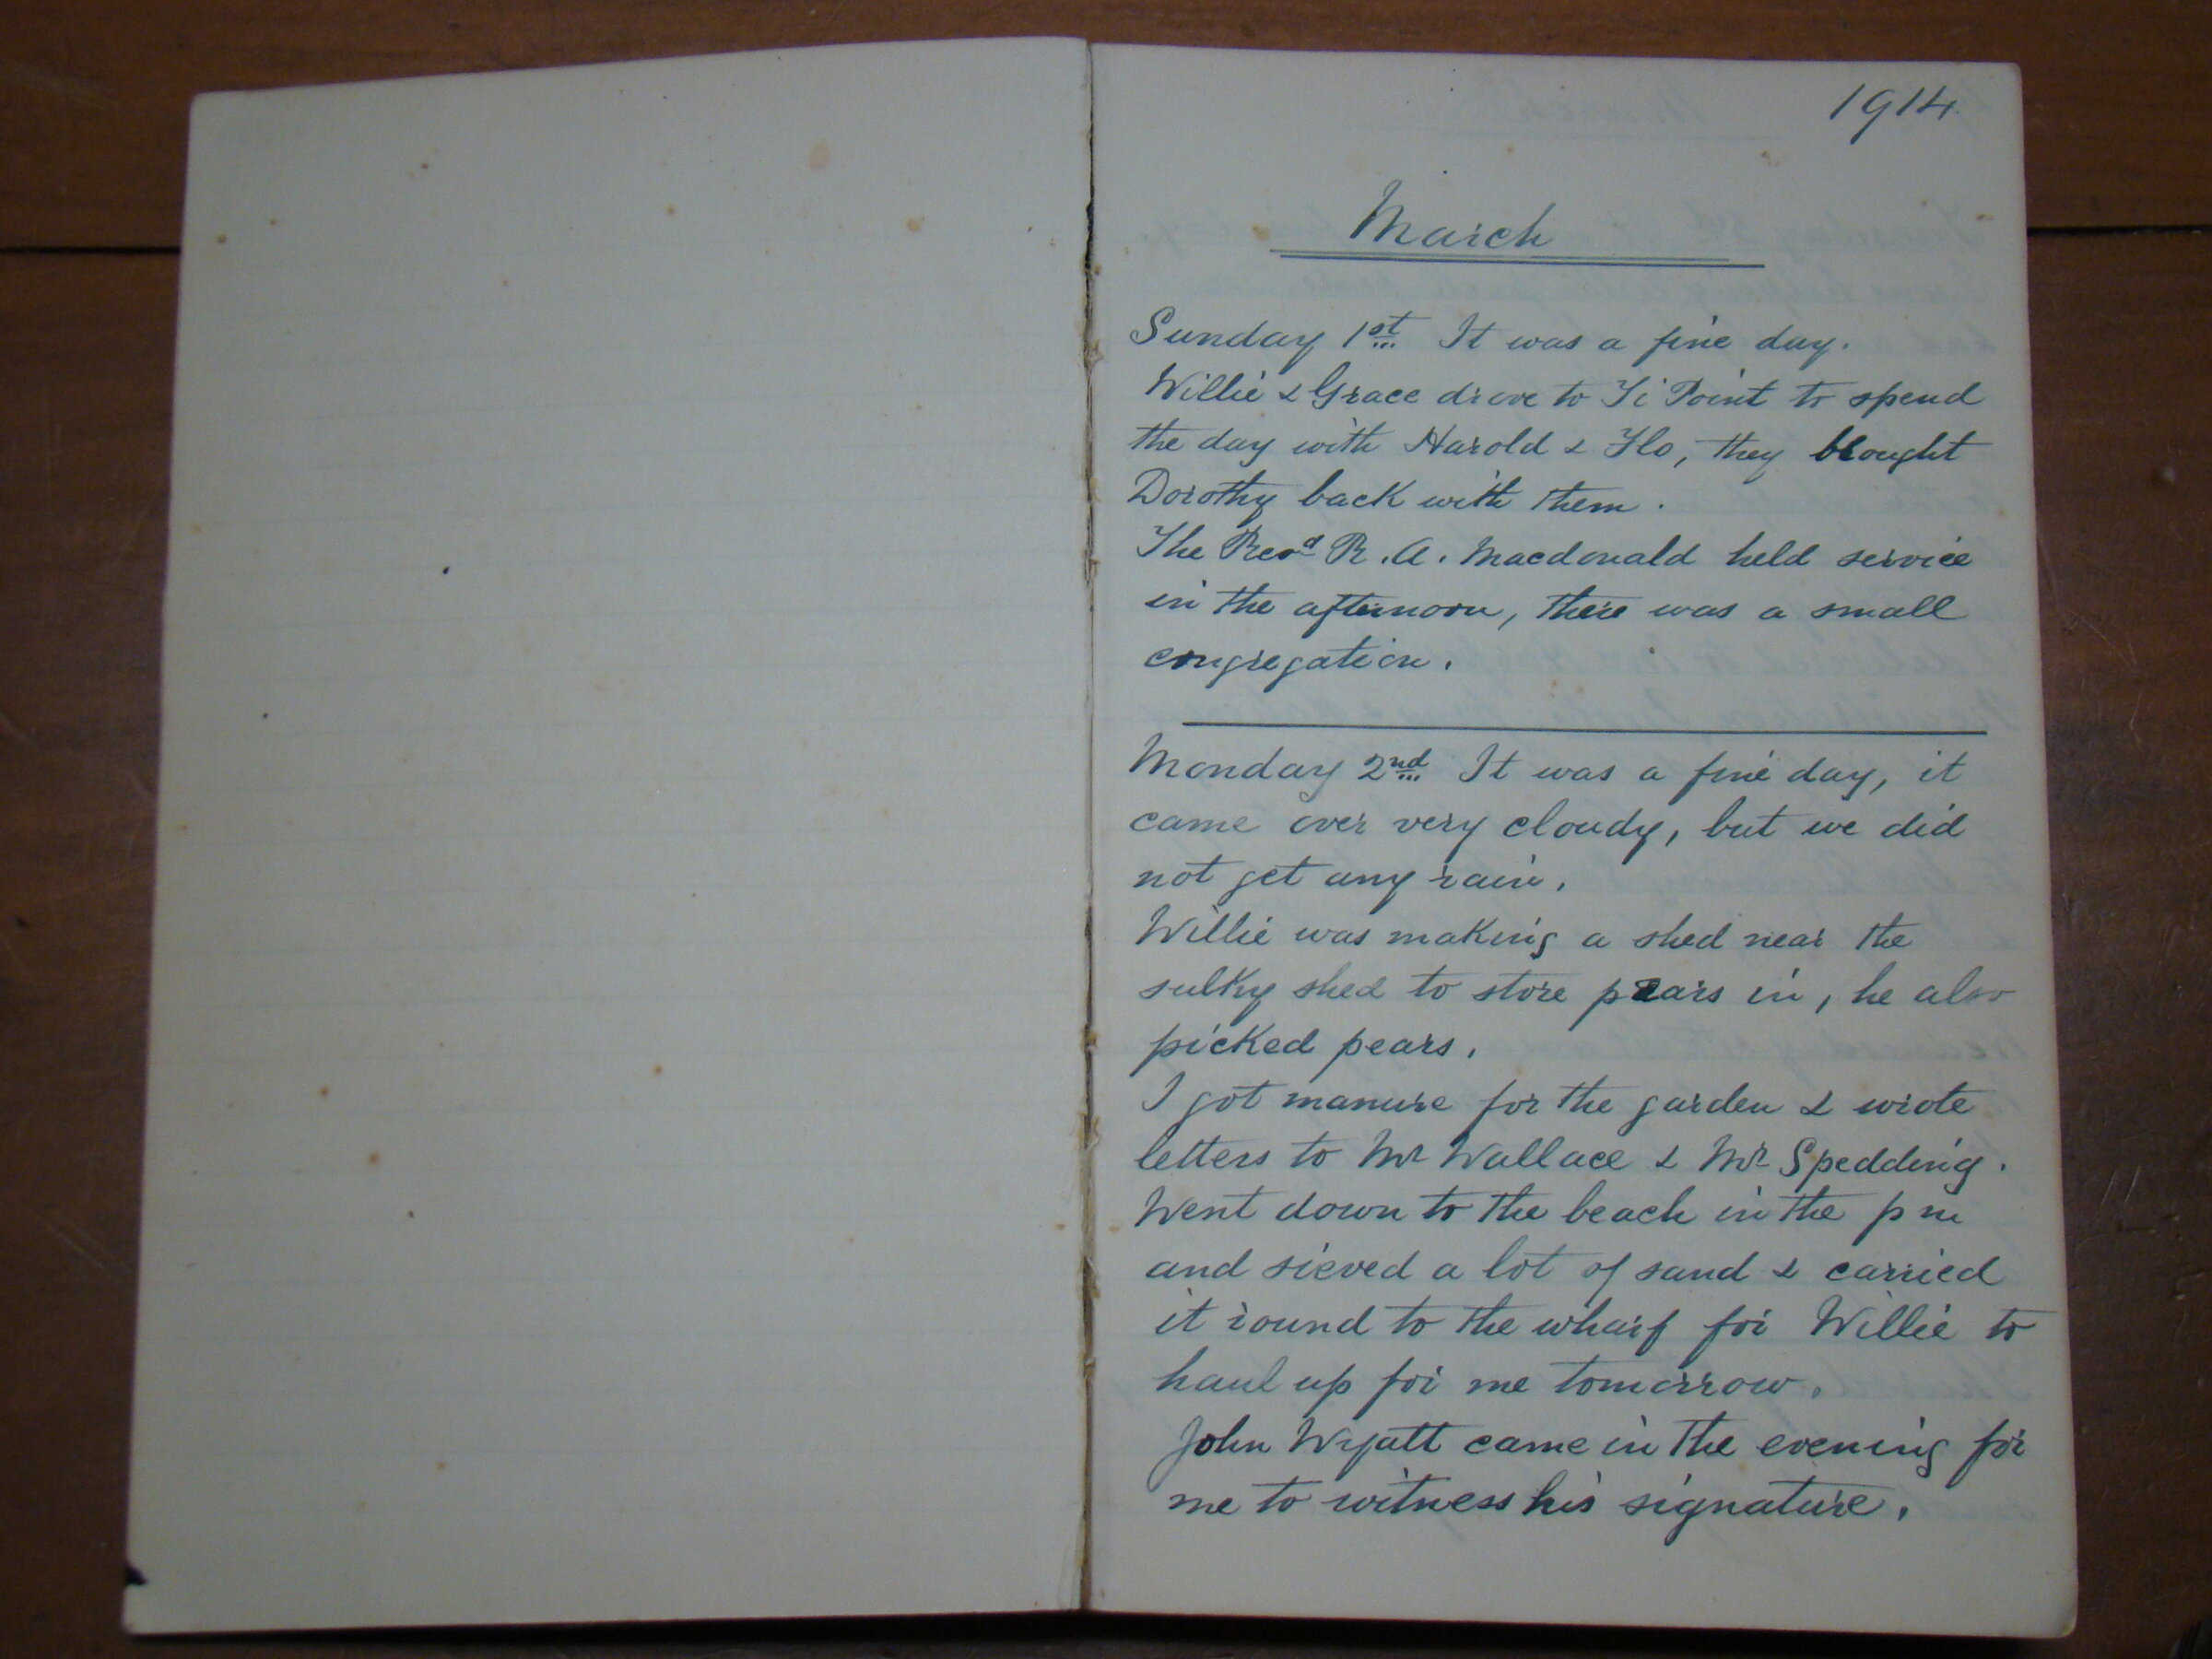 1914
March
Sunday 1st It was a fine day.
Willie & Grace drove to Ti Point to spend
the day with Harold & Flo, they brought
Dorothy back with them.
The Revd R. A. Macdonald held service
in the afternoon, there was a small
congregation.
Monday 2nd It was a fine day, it
came over very cloudy, but we did
not get any rain.
Willie was making a shed near the
sulky shed to store pears in, he also
picked pears.
I got manure for the garden & wrote
letters to Mr Wallace & Mr Spedding.
Went down to the beach in the pm
and sieved a lot of sand & carried
it round to the wharf for Willie to
haul up for me tomorrow.
John Wyatt came in the evening for
me to witness his signature.